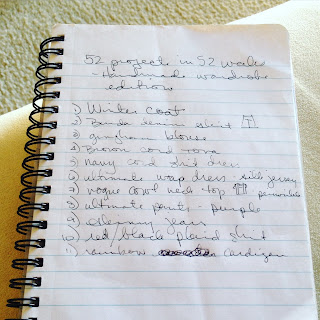 52 projects in 52 weeks
- Handmade wardrobe
edition
1) Winter coat
2) denim skirt
3) gingham blouse
4) Brown cord
5) navy cord shirt dress
6) ultimate wrap dress - silk jersey
7) vogue cowl neck top
8) ultimate pants - purple
9) jeans
10) red/black plaid shirt
11) rainbow cardigan